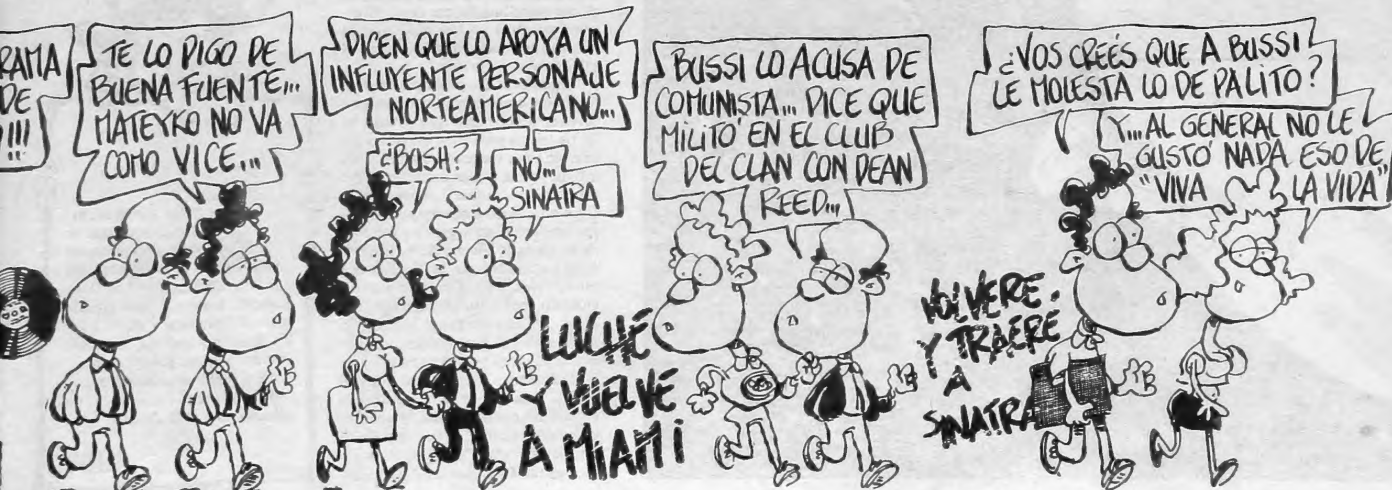 RAMA
DE
!!!
TE LO DIGO DE
BUENA FUENTE...
MATEYKO NO VA
COMO VICE...
DICEN QUE LO APOYA UN
INFLUYENTE PERSONAJE
NORTEAMERICANO...
¿BUSH?
NO...
SINATRA
LUCHE
Y VUELVE
A MIAMI
BUSSI LO ACUSA DE
COMUNISTA... DICE QUE
MILITÓ EN EL CLUB
DEL CLAN CON DEAN
REED...
VOLVERE.
Y TRAERE
A
SINATRA
¿VOS CREÉS QUE A BUSSI
LE MOLESTA LO DE PALITO?
Y... AL GENERAL NO LE
GUSTÓ NADA ESO DE
"VIVA LA VIDA"